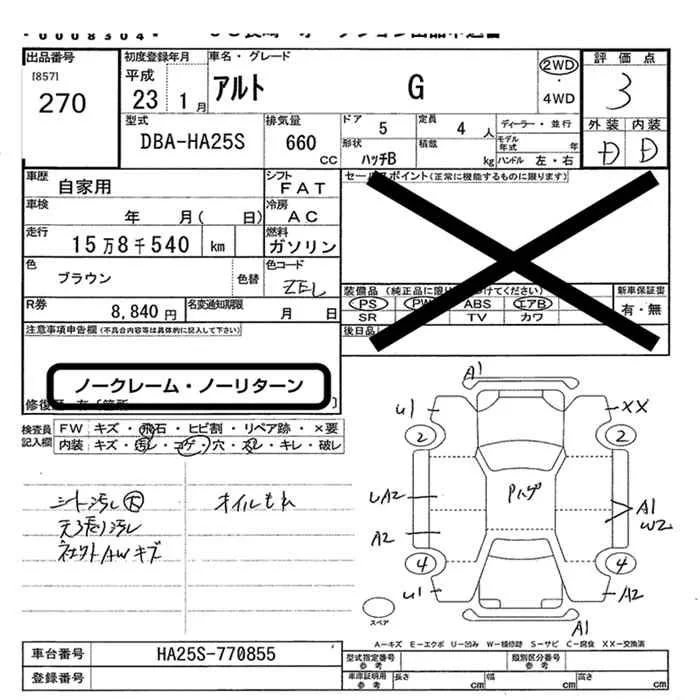 *00008304*
出品番号
[857]
270
初度登録年月
平成
23 1月
車名・グレード
アルト G
2WD
・
4WD
評価点
3
外装 内装
D D
型式
DBA-HA25S
排気量
660
CC
ドア 5
定員 4人
ディーラー・並行
モデル年式 年
形状 ハッチB
積載 kg
ハンドル 左・右
車歴
自家用
シフト
FAT
セールスポイント(正常に機能するものに限ります)
車検
年 月( 日)
冷房
AC
走行
15万8千540 km
燃料
ガソリン
色
ブラウン
色替
色コード
ZEL
装備品(純正品に限り 付けてください)
PS PW ABS エアB
SR TV カワ
新車保証書
有・無
R券
8,840円
名変通知期限
月 日
後日品
注意事項申告欄(不具合内容等は具体的に記入して下さい)
ノークレーム・ノーリターン
修復歴
検査員記入欄
FW キズ・飛石・ヒビ割・リペア跡・×要
内装 キズ・汚レ・コゲ・穴・スレ・キレ・破レ
シート汚レ大
オイルもれ
AWキズ
A1
U1
XX
2
2
UA2
Pハゲ
A1
W2
A2
4
4
U1
A2
A1
スペア
A—キズ E—エクボ U—凹み W—補修跡 S—サビ C—腐食 XX—交換済
車台番号
HA25S-770855
型式指定番号
参考
類別区分番号
参考
登録番号
車庫証明用
参考
長さ cm
幅 cm
高さ cm